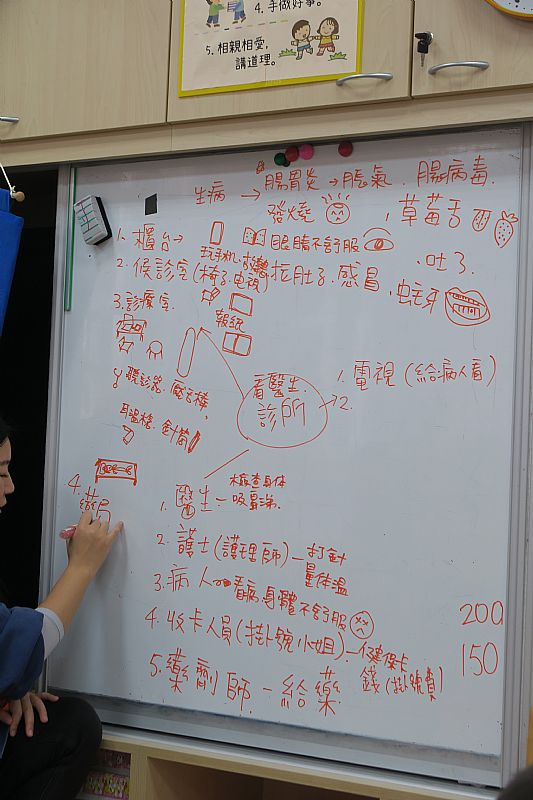 4. 手做好事。
5. 相親相愛，
講道理。
生病 → 腸胃炎 → 脹氣、腸病毒
發燒 、草莓舌
1. 櫃台→
玩手機、 眼睛不舒服
2. 候診室(椅子、电視) 拉肚子、感冒、吐了
、蛀牙
3. 診療室
報紙
看醫生
診所 → 2.
1. 電視(給病人看)
聽診器、壓舌棒、
耳溫槍、針筒
4. 藥局
1. 醫生 - 檢查身体
吸鼻涕
2. 護士(護理師) - 打針
量体溫
3. 病人 看病、身體不舒服
4. 收卡人員(掛號小姐) - 健保卡
錢(掛號費)
200
150
5. 藥劑師 - 給藥